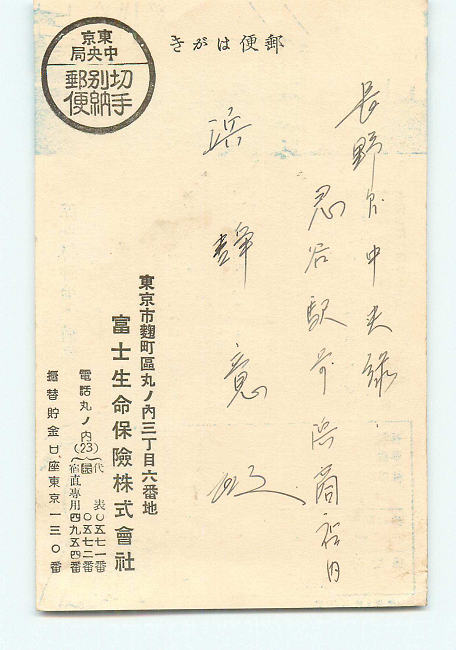 郵便はがき
東京
中央局
切手
別納
郵便
中央線
駅前
浜静
東京市麴町區丸ノ內三丁目六番地
富士生命保險株式會社
電話丸ノ內(23)
代表〇五七一番
〇五七二番
宿直專用四九五四番
振替貯金口座東京一三〇番